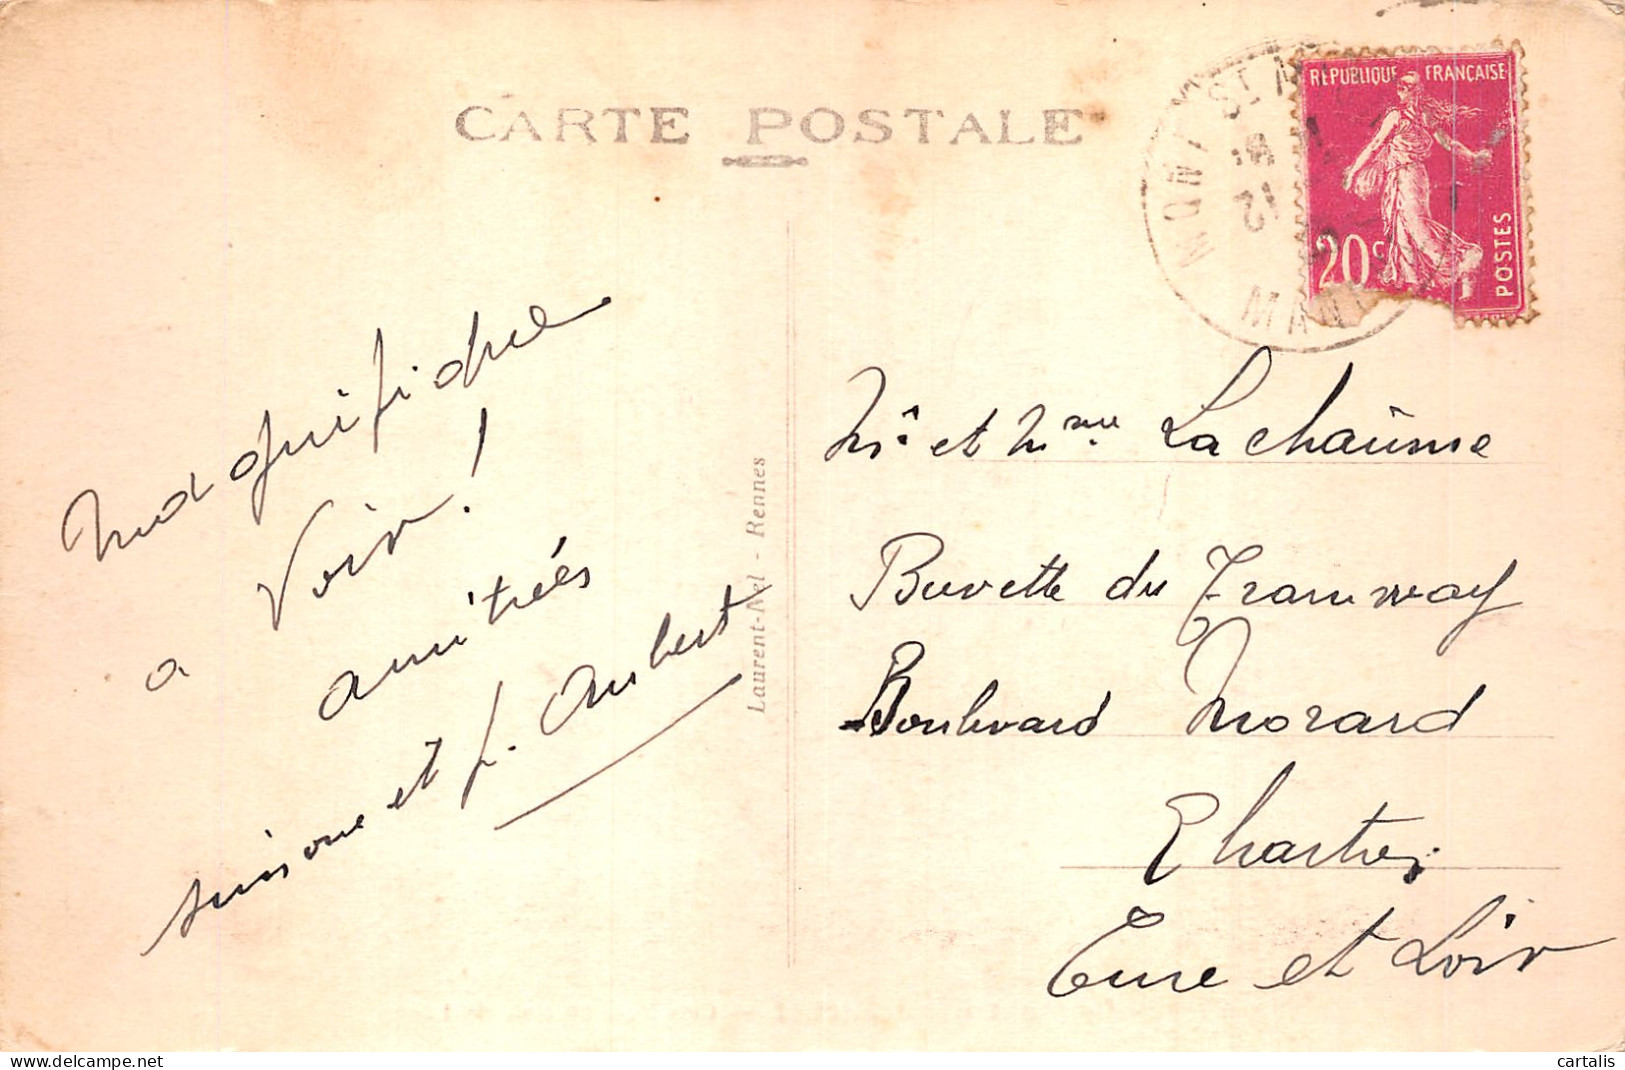 CARTE POSTALE
REPUBLIQUE FRANÇAISE
20c
POSTES
MONT ST M
MAN
Magnifique
a Voir!
amitiés
simone et J. Aubert
Laurent-Nel - Rennes
Mr et Mme Lachaüme
Buvette du Tramway
Boulevard Morard
Chartres
Eure et Loir
cartalis